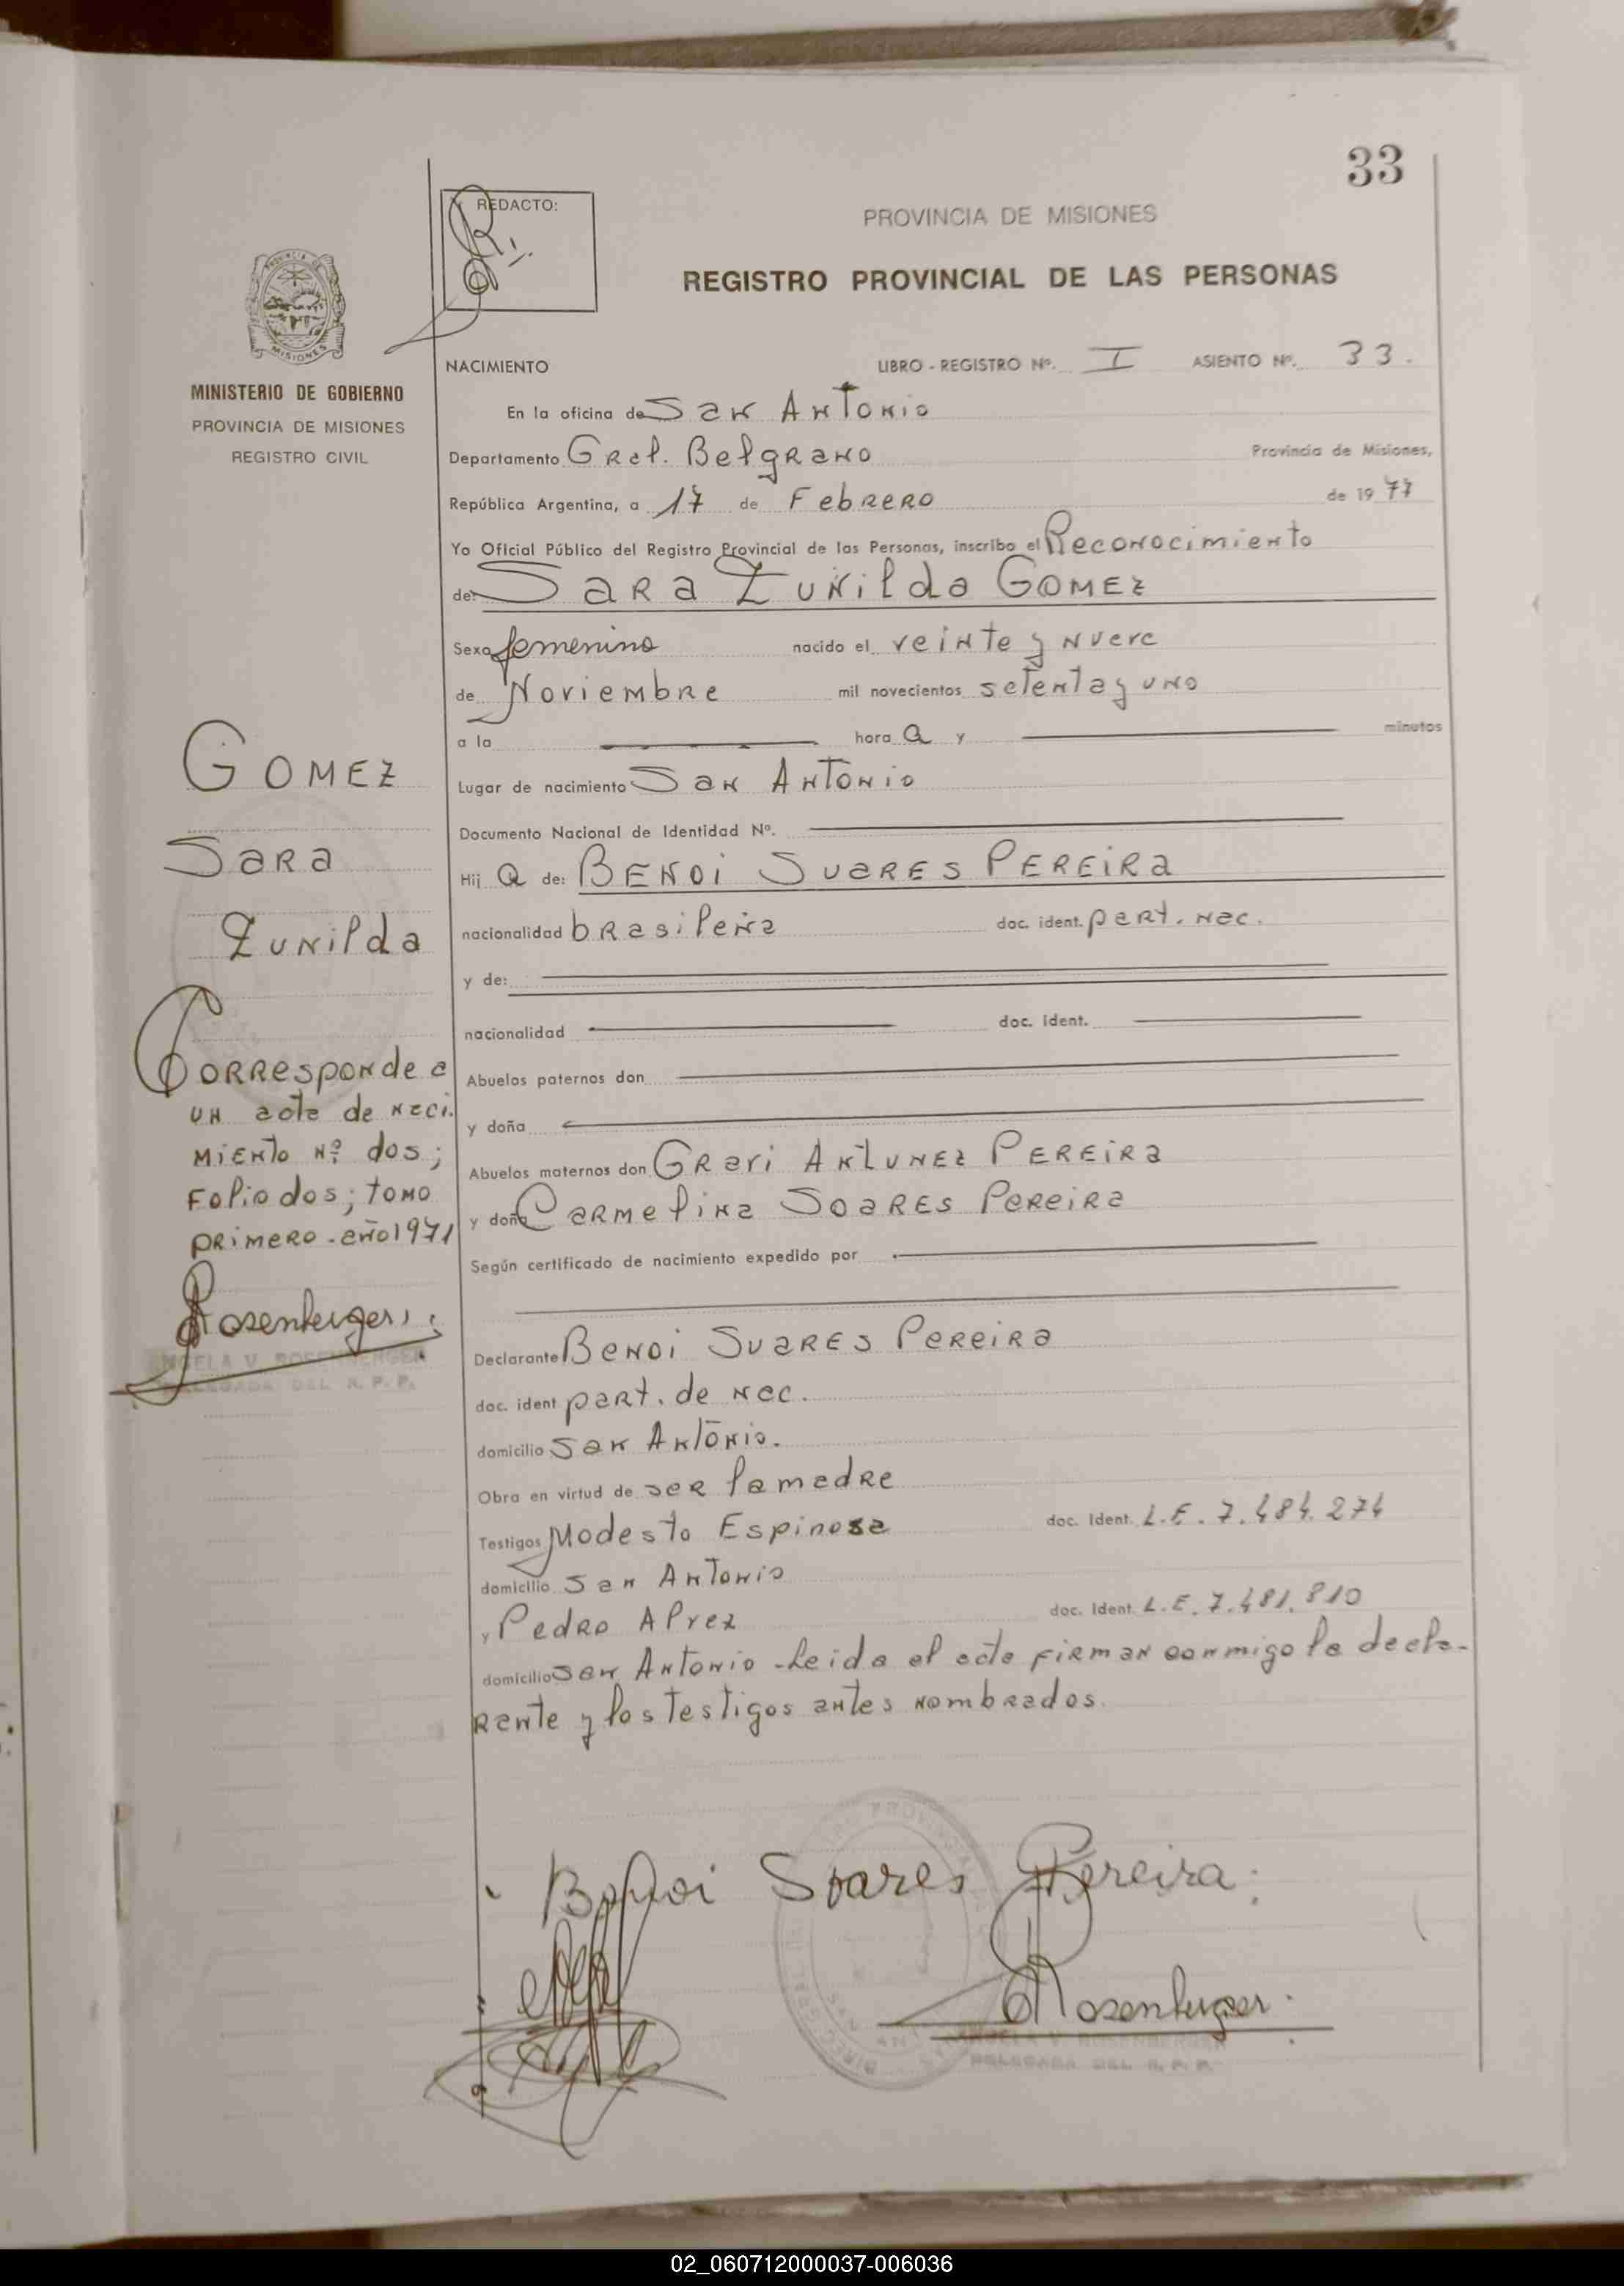 33
REDACTO:
PROVINCIA DE MISIONES
REGISTRO PROVINCIAL DE LAS PERSONAS
MINISTERIO DE GOBIERNO
PROVINCIA DE MISIONES
REGISTRO CIVIL
NACIMIENTO LIBRO - REGISTRO Nº. I ASIENTO Nº. 33.
En la oficina de San Antonio
Departamento Gral. Belgrano Provincia de Misiones,
República Argentina, a 17 de Febrero de 19 77
Yo Oficial Público del Registro Provincial de las Personas, inscribo el Reconocimiento
de: Sara Zunilda GOMEZ
Sexo femenino nacido el veinte y nueve
de Noviembre mil novecientos setenta y uno
a la hora a y minutos
Lugar de nacimiento San Antonio
Documento Nacional de Identidad Nº.
Hij a de: BENDI SUARES PEREIRA
nacionalidad brasileña doc. ident. part. nac.
y de:
nacionalidad doc. ident.
Abuelos paternos don
y doña
Abuelos maternos don Gravi Antunez PEREIRA
y doña Carmelina SOARES Pereira
Según certificado de nacimiento expedido por
Declarante Bendi SUARES Pereira
doc. ident part. de nac.
domicilio San Antonio.
Obra en virtud de ser la madre
Testigos Modesto Espinosa doc. Ident. L.E. 7.484.274
domicilio San Antonio
y Pedro Alvez doc. Ident. L.E. 7.481.810
domicilio San Antonio - Leida el acta firman conmigo la decla-
rante y los testigos antes nombrados.
GOMEZ
Sara
Zunilda
Corresponde a
un acta de naci-
miento Nº dos;
Folio dos; tomo
primero - año 1971
Rosenberger
ANGELA V. ROSENBERGER
DELEGADA DEL R. P. P.
Bendi Soares Pereira
Rosenberger
ANGELA V. ROSENBERGER
DELEGADA DEL R. P. P.
02_060712000037-006036